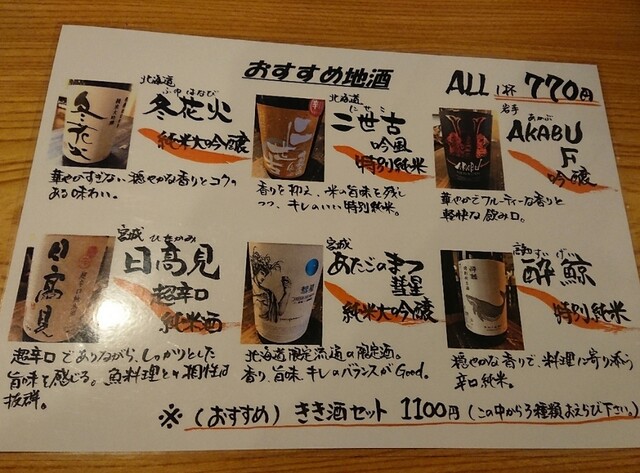 おすすめ地酒
ALL 1杯 770円
北海道
ふゆはなび
冬花火
純米大吟醸
華やかすぎない穏やかな香りとコクの
ある味わい。
冬花火
北海道
にせこ
二世古
吟風
特別純米
香りを抑え、米の旨味を残し
つつ、キレのいい特別純米。
岩手
あかぶ
AKABU
F
吟醸
華やかでフルーティーな香りと
軽快な飲み口。
AKABU
宮城 ひたかみ
日高見
超辛口
純米酒
超辛口でありながら、しっかりとした
旨味を感じる。魚料理との相性は
抜群。
日高見
宮城
あたごのまつ
彗星
純米大吟醸
北海道限定流通の限定酒。
香り、旨味、キレのバランスがGood。
彗星
すいげい
酔鯨
特別純米
穏やかな香りで、料理に寄り添う
辛口純米。
酔鯨
※(おすすめ) きき酒セット 1100円 (この中から3種類おえらび下さい。)